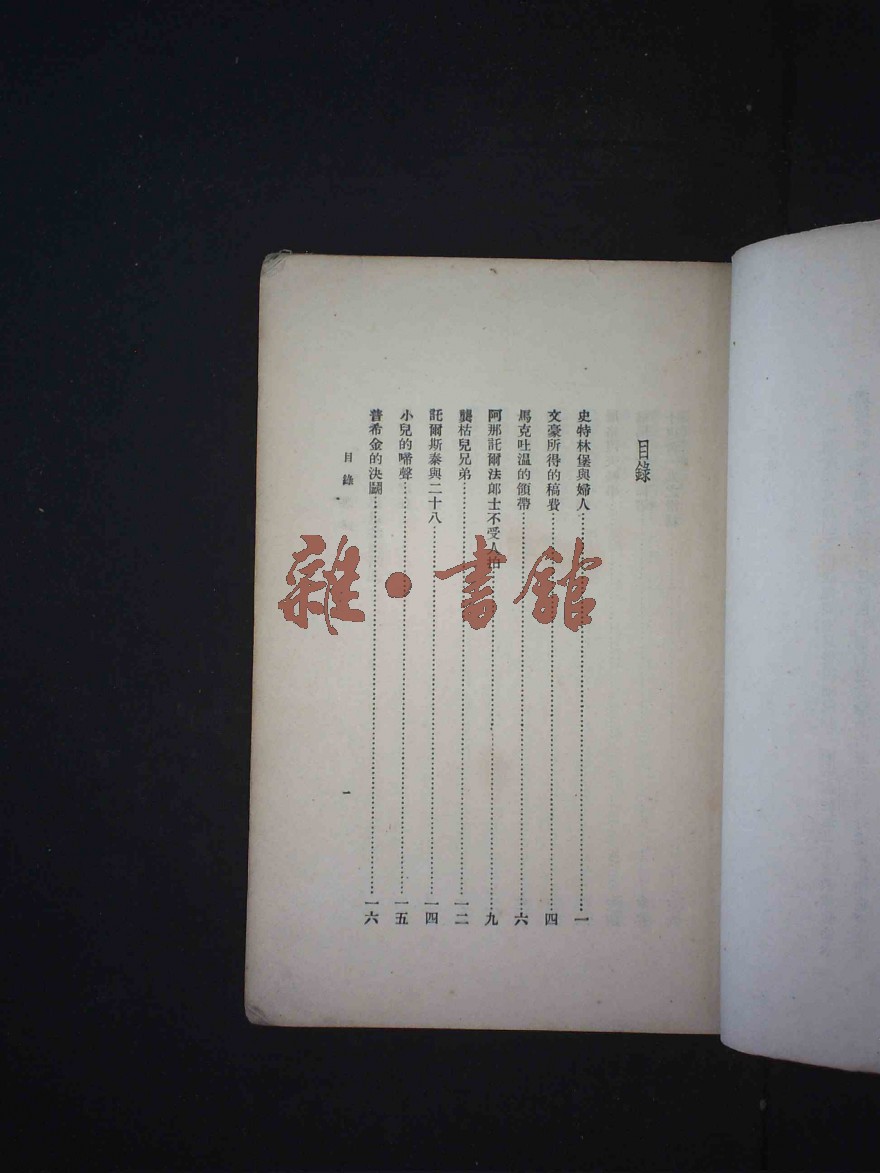 目錄
史特林堡與婦人……一
文豪所得的稿費……四
馬克吐温的領帶……六
阿那託爾法郎士不受人拍……九
龔枯兒兄弟……一二
託爾斯泰與二十八……一四
小兒的啼聲……一五
普希金的決鬭……一六
目錄
一
雜·書館